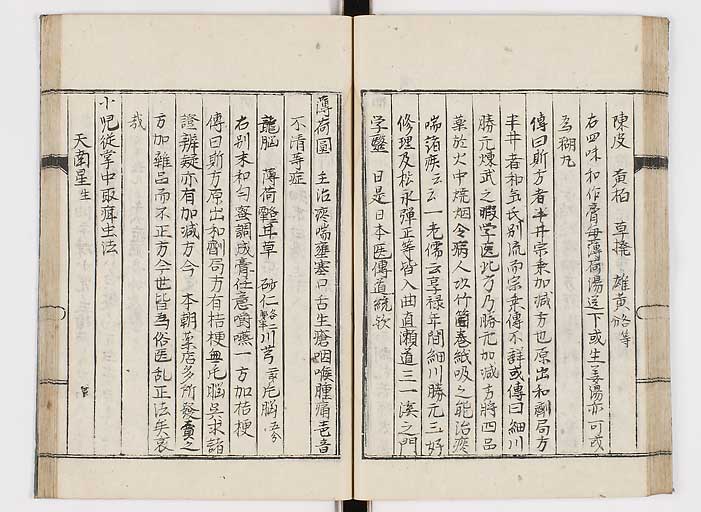 陳皮 黄栢 草撓 雄黄各等
右四味和作膏毎薄荷湯送下或生姜湯亦可或
為糊丸
傳曰斯方者半井宗乗加減方也原出和劑局方
半井者和氣氏別流而宗乗傳不詳或傳曰細川
勝元煉武之暇学医此方乃勝元加減方将四品
藥於火中焼烟令病人以竹筒巻紙吸之能治痰
喘痼疾云云一老儒云享禄年間細川勝元三好
修理及松永弾正等皆入曲直瀬道三一溪之門
学醫 日是日本医傳道統欤
薄荷圓 主治痰喘壅塞口舌生瘡咽喉腫痛壱音
不清等症
龍脳 薄荷 耳草 砂仁 川芎 片脳五分
右別末和勻蜜調成膏任意嚼嚥一方加桔梗
傳曰斯方原出和劑局方有桔梗無片脳呉求諸
證辨疑亦有加減方今 本朝藥店多所發賣之
方加雜品而不正方今世皆為俗医乱正法失哀
哉
小児従掌中取疳虫法
天南星生